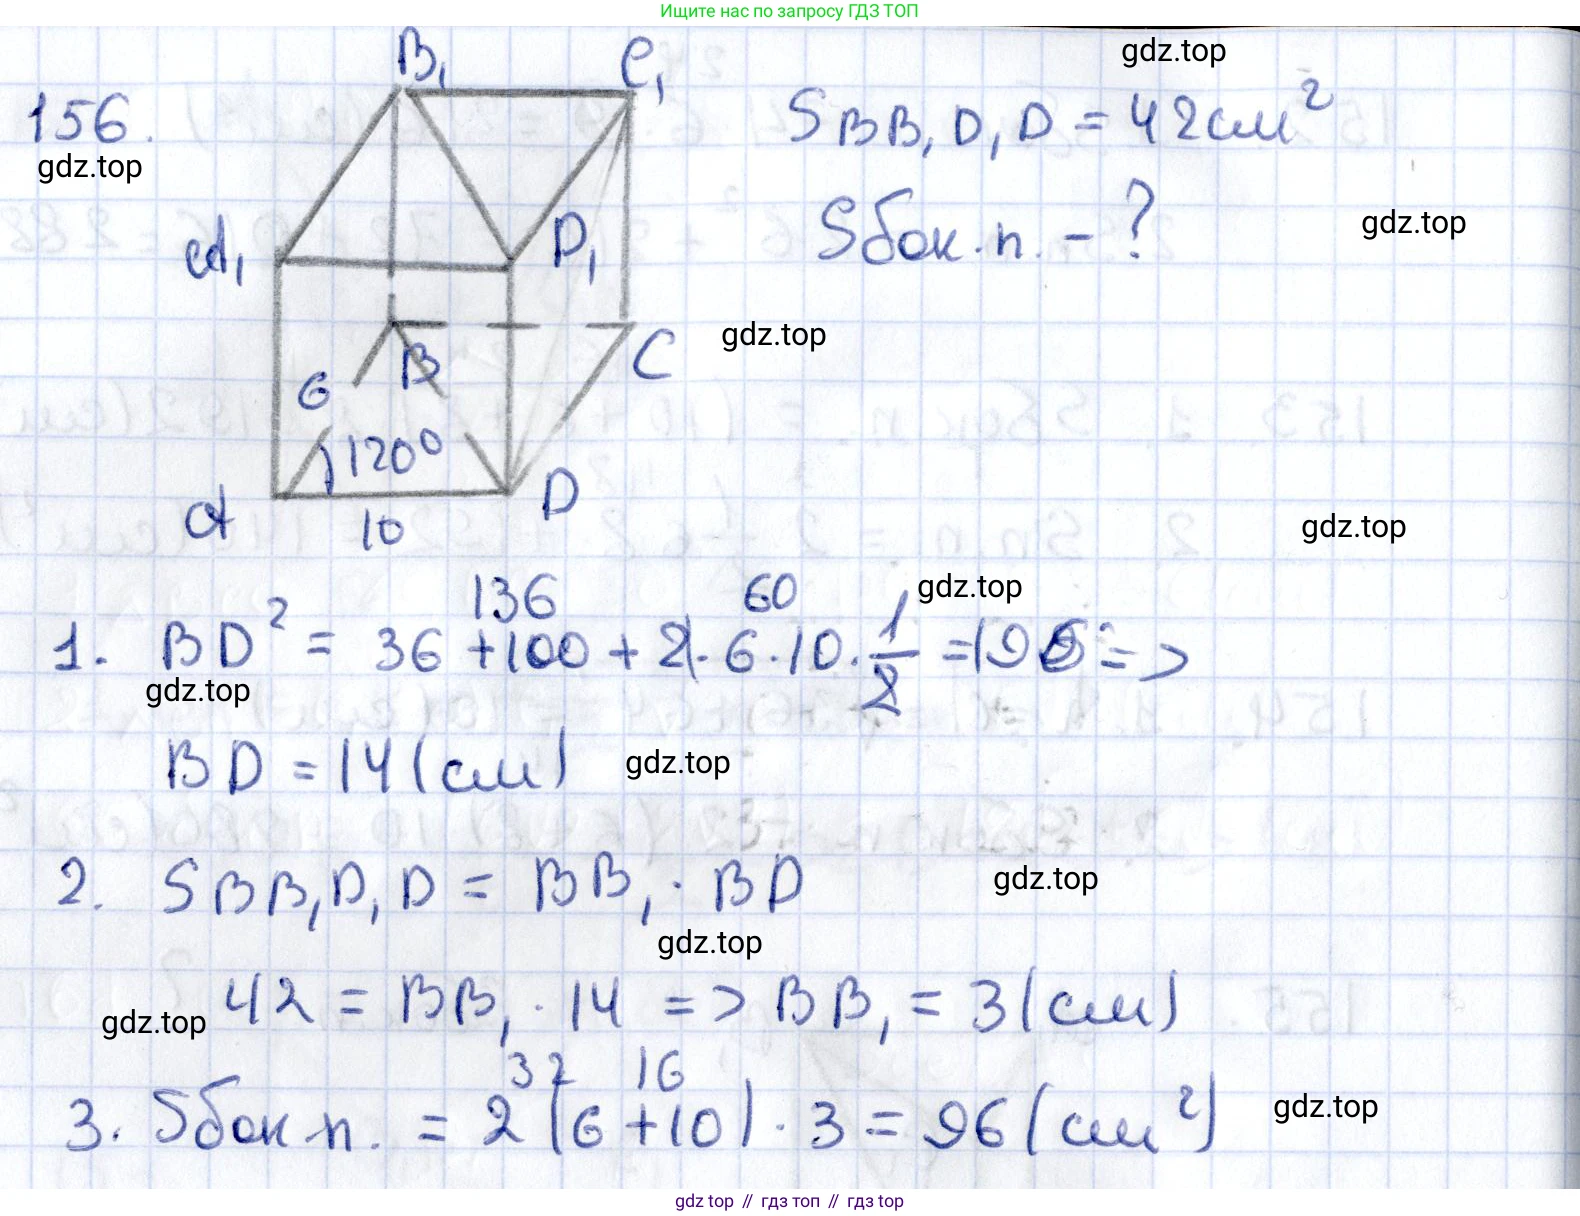 Ищите нас по запросу ГДЗ ТОП
156.
B₁ C₁
A₁ D₁
6 B C
120°
A 10 D
S BB₁D₁D = 42 см²
Sбок.п. - ?
gdz.top
gdz.top
gdz.top
gdz.top
gdz.top
136 60
1. BD² = 36 + 100 + 2 · 6 · 10 · 1/2 = 196 =>
gdz.top
gdz.top
BD = 14 (см)
gdz.top
2. S BB₁D₁D = BB₁ · BD
gdz.top
gdz.top
42 = BB₁ · 14 => BB₁ = 3 (см)
gdz.top
32 16
3. Sбок.п. = 2 (6 + 10) · 3 = 96 (см²)
gdz.top
gdz.top // гдз топ // гдз top